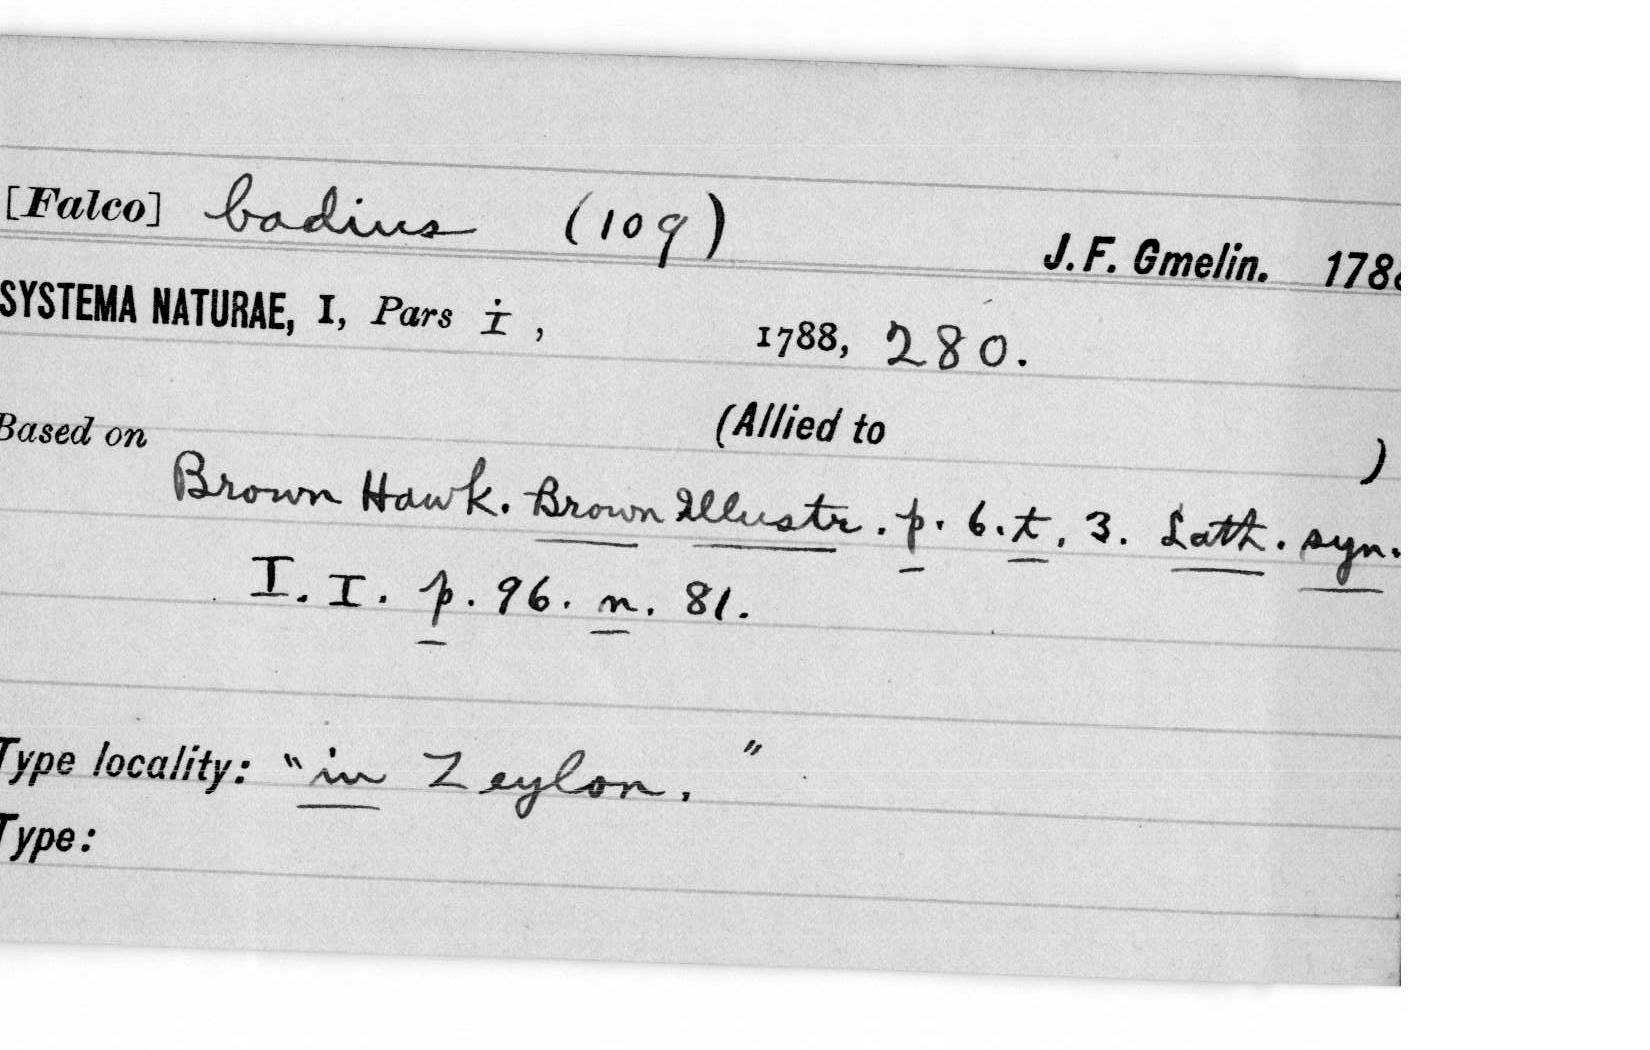 [Falco] badius (109)
J. F. Gmelin. 1788
SYSTEMA NATURAE, I, Pars i, 1788, 280.
Based on (Allied to )
Brown Hawk. Brown Illustr. p. 6. t. 3. Lath. syn.
I. I. p. 96. n. 81.
Type locality: "in Zeylon."
Type: